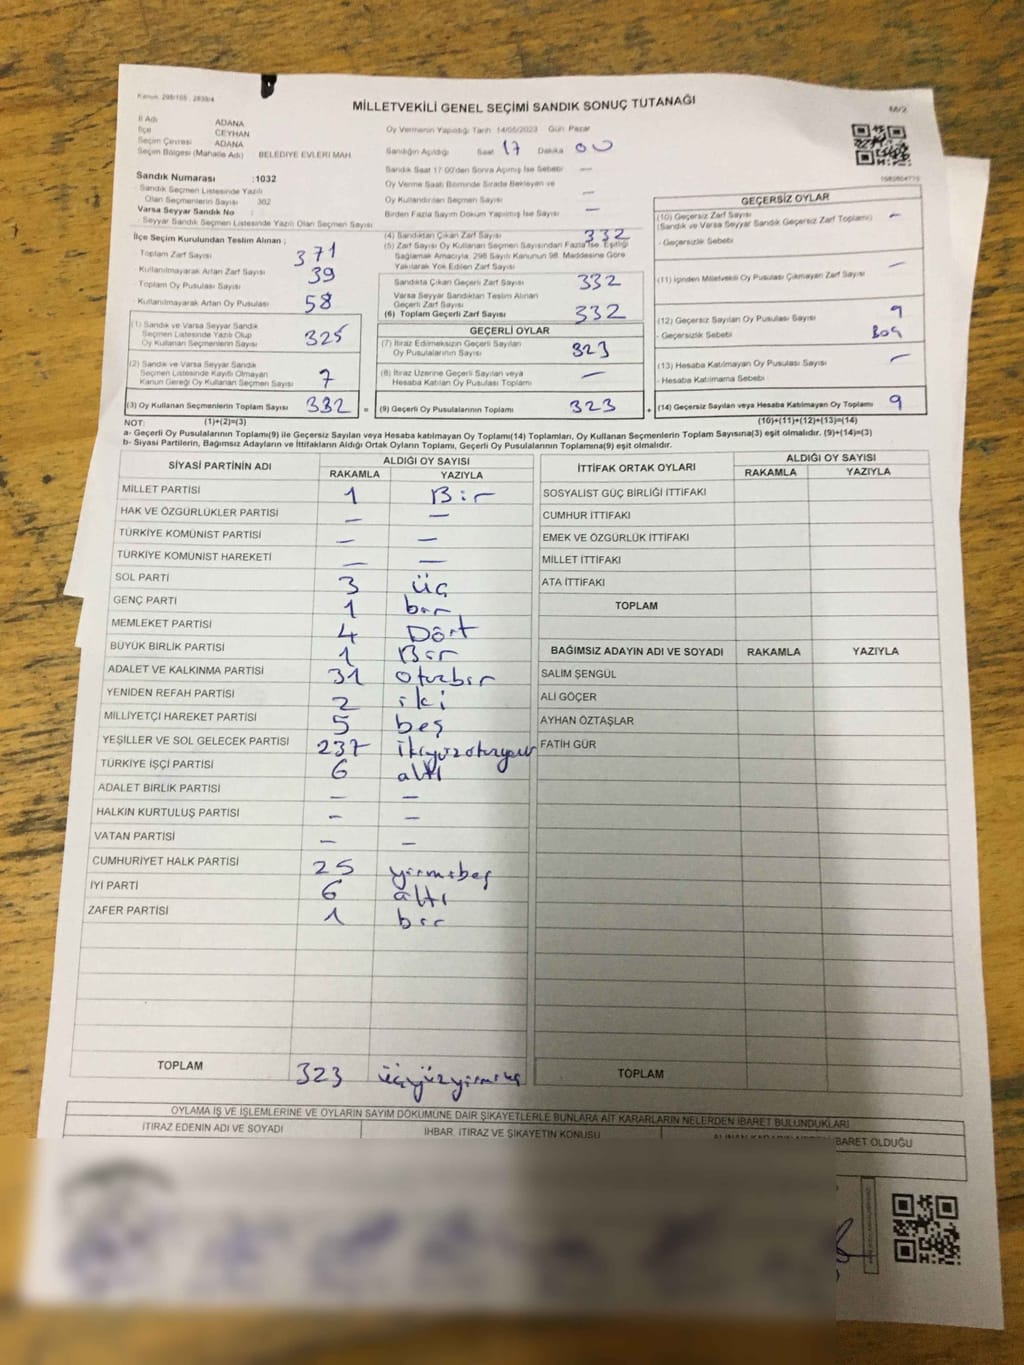 Kanun: 298/105 , 2839/4
MİLLETVEKİLİ GENEL SEÇİMİ SANDIK SONUÇ TUTANAĞI
M/2
İl Adı ADANA
İlçe CEYHAN
Seçim Çevresi ADANA
Seçim Bölgesi (Mahalle Adı) BELEDİYE EVLERİ MAH.
Sandık Numarası :1032
Sandık Seçmen Listesinde Yazılı
Olan Seçmenlerin Sayısı 302
Varsa Seyyar Sandık No :
Seyyar Sandık Seçmen Listesinde Yazılı Olan Seçmen Sayısı
Oy Vermenin Yapıldığı Tarih 14/05/2023 Gün Pazar
Sandığın Açıldığı Saat 17 Dakika 00
Sandık Saat 17:00'den Sonra Açılmış İse Sebebi —
Oy Verme Saati Bitiminde Sırada Bekleyen ve
Oy Kullandırılan Seçmen Sayısı —
Birden Fazla Sayım Döküm Yapılmış İse Sayısı —
İlçe Seçim Kurulundan Teslim Alınan ;
Toplam Zarf Sayısı 371
Kullanılmayarak Artan Zarf Sayısı 39
Toplam Oy Pusulası Sayısı
Kullanılmayarak Artan Oy Pusulası 58
(1) Sandık ve Varsa Seyyar Sandık
Seçmen Listesinde Yazılı Olup
Oy Kullanan Seçmenlerin Sayısı 325
(2) Sandık ve Varsa Seyyar Sandık
Seçmen Listesinde Kayıtlı Olmayan
Kanun Gereği Oy Kullanan Seçmen Sayısı 7
(3) Oy Kullanan Seçmenlerin Toplam Sayısı 332 =
(4) Sandıktan Çıkan Zarf Sayısı 332
(5) Zarf Sayısı Oy Kullanan Seçmen Sayısından Fazla İse, Eşitliği
Sağlamak Amacıyla, 298 Sayılı Kanunun 98. Maddesine Göre
Yakılarak Yok Edilen Zarf Sayısı
Sandıkta Çıkan Geçerli Zarf Sayısı 332
Varsa Seyyar Sandıktan Teslim Alınan
Geçerli Zarf Sayısı
(6) Toplam Geçerli Zarf Sayısı 332
GEÇERLİ OYLAR
(7) İtiraz Edilmeksizin Geçerli Sayılan
Oy Pusulalarının Sayısı 323
(8) İtiraz Üzerine Geçerli Sayılan veya
Hesaba Katılan Oy Pusulası Toplamı —
(9) Geçerli Oy Pusulalarının Toplamı 323 +
GEÇERSİZ OYLAR
(10) Geçersiz Zarf Sayısı —
(Sandık ve Varsa Seyyar Sandık Geçersiz Zarf Toplamı)
- Geçersizlik Sebebi
(11) İçinden Milletvekili Oy Pusulası Çıkmayan Zarf Sayısı —
(12) Geçersiz Sayılan Oy Pusulası Sayısı 9
- Geçersizlik Sebebi Boş
(13) Hesaba Katılmayan Oy Pusulası Sayısı —
- Hesaba Katılmama Sebebi
(14) Geçersiz Sayılan veya Hesaba Katılmayan Oy Toplamı 9
NOT: (1)+(2)=(3) (10)+(11)+(12)+(13)=(14)
a- Geçerli Oy Pusulalarının Toplamı(9) ile Geçersiz Sayılan veya Hesaba katılmayan Oy Toplamı(14) Toplamları, Oy Kullanan Seçmenlerin Toplam Sayısına(3) eşit olmalıdır. (9)+(14)=(3)
b- Siyasi Partilerin, Bağımsız Adayların ve İttifakların Aldığı Ortak Oyların Toplamı, Geçerli Oy Pusulalarının Toplamına(9) eşit olmalıdır.
SİYASİ PARTİNİN ADI ALDIĞI OY SAYISI
RAKAMLA YAZIYLA
MİLLET PARTİSİ 1 Bir
HAK VE ÖZGÜRLÜKLER PARTİSİ — —
TÜRKİYE KOMÜNİST PARTİSİ — —
TÜRKİYE KOMÜNİST HAREKETİ — —
SOL PARTİ 3 üç
GENÇ PARTİ 1 bir
MEMLEKET PARTİSİ 4 Dört
BÜYÜK BİRLİK PARTİSİ 1 Bir
ADALET VE KALKINMA PARTİSİ 31 otuzbir
YENİDEN REFAH PARTİSİ 2 iki
MİLLİYETÇİ HAREKET PARTİSİ 5 beş
YEŞİLLER VE SOL GELECEK PARTİSİ 237 ikiyüzotuzyedi
TÜRKİYE İŞÇİ PARTİSİ 6 altı
ADALET BİRLİK PARTİSİ — —
HALKIN KURTULUŞ PARTİSİ — —
VATAN PARTİSİ — —
CUMHURİYET HALK PARTİSİ 25 yirmibeş
İYİ PARTİ 6 altı
ZAFER PARTİSİ 1 bir
TOPLAM 323 üçyüzyirmiüç
İTTİFAK ORTAK OYLARI ALDIĞI OY SAYISI
RAKAMLA YAZIYLA
SOSYALİST GÜÇ BİRLİĞİ İTTİFAKI
CUMHUR İTTİFAKI
EMEK VE ÖZGÜRLÜK İTTİFAKI
MİLLET İTTİFAKI
ATA İTTİFAKI
TOPLAM
BAĞIMSIZ ADAYIN ADI VE SOYADI RAKAMLA YAZIYLA
SALİM ŞENGÜL
ALİ GÖÇER
AYHAN ÖZTAŞLAR
FATİH GÜR
TOPLAM
OYLAMA İŞ VE İŞLEMLERİNE VE OYLARIN SAYIM DÖKÜMÜNE DAİR ŞİKAYETLERLE BUNLARA AİT KARARLARIN NELERDEN İBARET BULUNDUKLARI
İTİRAZ EDENİN ADI VE SOYADI İHBAR, İTİRAZ VE ŞİKAYETİN KONUSU İBARET OLDUĞU